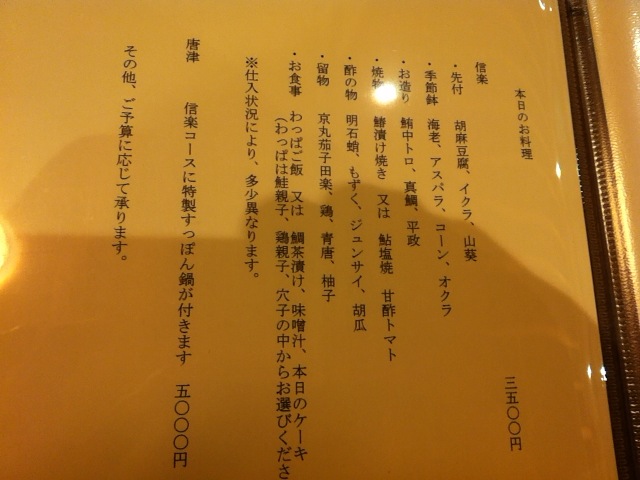 本日のお料理
信楽 三五〇〇円
・先付 胡麻豆腐、イクラ、山葵
・季節鉢 海老、アスパラ、コーン、オクラ
・お造り 鮪中トロ、真鯛、平政
・焼物 鰆漬け焼き 又は 鮎塩焼 甘酢トマト
・酢の物 明石蛸、もずく、ジュンサイ、胡瓜
・留物 京丸茄子田楽、鶏、青唐、柚子
・お食事 わっぱご飯 又は 鯛茶漬け、味噌汁、本日のケーキ
(わっぱは鮭親子、鶏親子、穴子の中からお選びくださ
※仕入状況により、多少異なります。
唐津 信楽コースに特製すっぽん鍋が付きます 五〇〇〇円
その他、ご予算に応じて承ります。